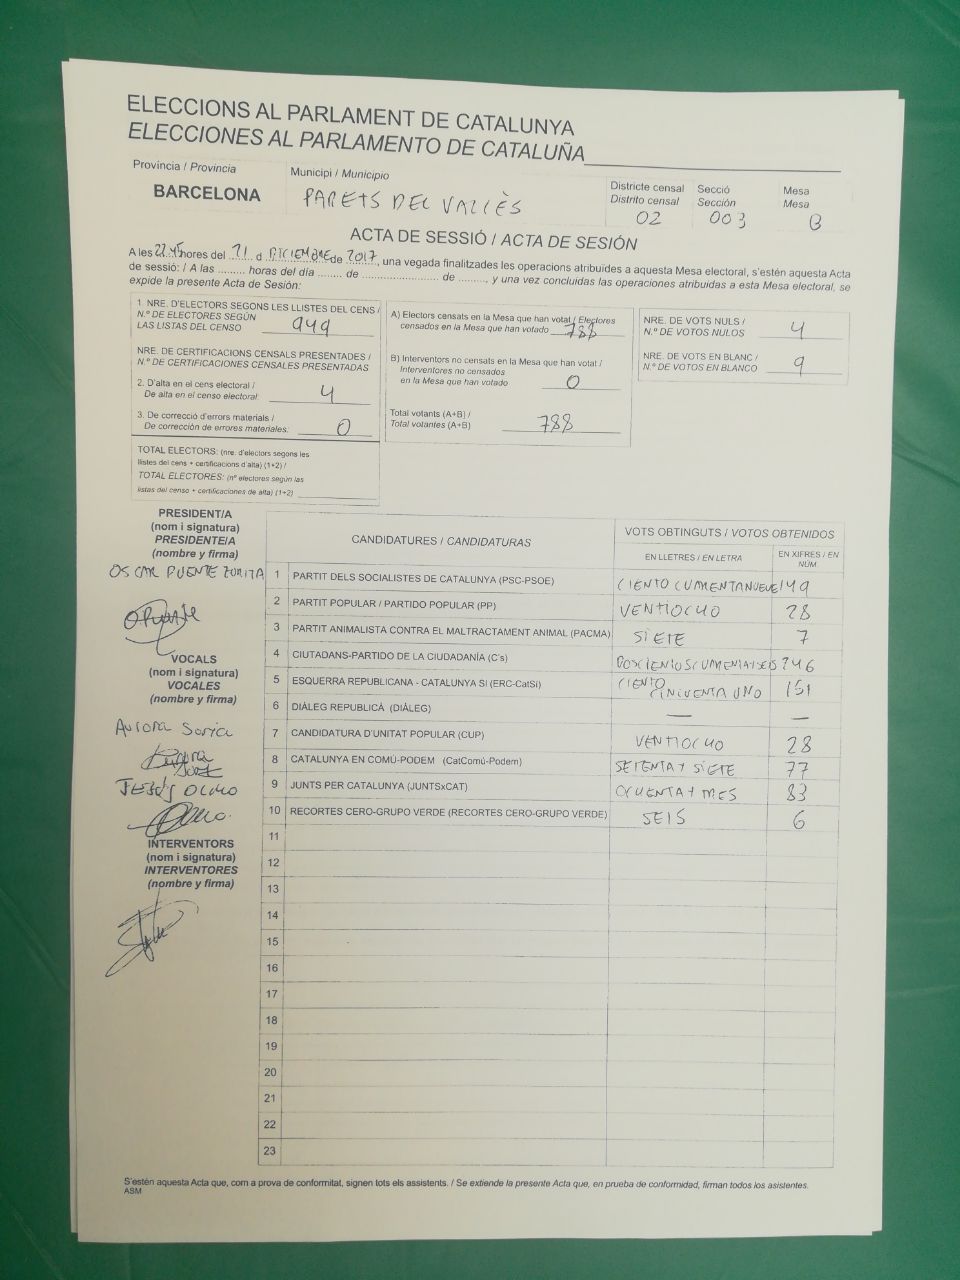 ELECCIONS AL PARLAMENT DE CATALUNYA
ELECCIONES AL PARLAMENTO DE CATALUÑA
Provincia / Provincia
BARCELONA
Municipi / Municipio
PARETS DEL VALLÈS
Districte censal
Distrito censal
02
Secció
Sección
003
Mesa
Mesa
B
ACTA DE SESSIÓ / ACTA DE SESIÓN
A les 22.45 hores del 21 d DICIEMBRE de 2017, una vegada finalitzades les operacions atribuïdes a aquesta Mesa electoral, s'estén aquesta Acta
de sessió: / A las ......... horas del día ....... de ........................ de ........, y una vez concluidas las operaciones atribuidas a esta Mesa electoral, se
expide la presente Acta de Sesión:
1. NRE. D'ELECTORS SEGONS LES LLISTES DEL CENS /
N.º DE ELECTORES SEGÚN
LAS LISTAS DEL CENSO 949
NRE. DE CERTIFICACIONS CENSALS PRESENTADES /
N.º DE CERTIFICACIONES CENSALES PRESENTADAS
2. D'alta en el cens electoral /
De alta en el censo electoral: 4
3. De correcció d'errors materials /
De corrección de errores materiales: 0
TOTAL ELECTORS: (nre. d'electors segons les
llistes del cens + certificacions d'alta) (1+2) /
TOTAL ELECTORES: (nº electores según las
listas del censo + certificaciones de alta) (1+2)
A) Electors censats en la Mesa que han votat / Electores
censados en la Mesa que han votado 788
B) Interventors no censats en la Mesa que han votat /
Interventores no censados
en la Mesa que han votado 0
Total votants (A+B) /
Total votantes (A+B) 788
NRE. DE VOTS NULS /
N.º DE VOTOS NULOS 4
NRE. DE VOTS EN BLANC /
N.º DE VOTOS EN BLANCO 9
PRESIDENT/A
(nom i signatura)
PRESIDENTE/A
(nombre y firma)
OSCAR PUENTE ZORITA
VOCALS
(nom i signatura)
VOCALES
(nombre y firma)
Aurora Soria
JESÚS OLMO
INTERVENTORS
(nom i signatura)
INTERVENTORES
(nombre y firma)
CANDIDATURES / CANDIDATURAS
VOTS OBTINGUTS / VOTOS OBTENIDOS
EN LLETRES / EN LETRA
EN XIFRES / EN
NÚM.
1 PARTIT DELS SOCIALISTES DE CATALUNYA (PSC-PSOE) CIENTO CUARENTANUEVE 149
2 PARTIT POPULAR / PARTIDO POPULAR (PP) VENTIOCHO 28
3 PARTIT ANIMALISTA CONTRA EL MALTRACTAMENT ANIMAL (PACMA) SIETE 7
4 CIUTADANS-PARTIDO DE LA CIUDADANÍA (C's) DOSCIENTOSCUARENTAISEIS 246
5 ESQUERRA REPUBLICANA - CATALUNYA SÍ (ERC-CatSí) CIENTO CINCUENTA UNO 151
6 DIÀLEG REPUBLICÀ (DIÀLEG) — —
7 CANDIDATURA D'UNITAT POPULAR (CUP) VENTIOCHO 28
8 CATALUNYA EN COMÚ-PODEM (CatComú-Podem) SETENTA Y SIETE 77
9 JUNTS PER CATALUNYA (JUNTSxCAT) OCHENTA Y TRES 83
10 RECORTES CERO-GRUPO VERDE (RECORTES CERO-GRUPO VERDE) SEIS 6
11
12
13
14
15
16
17
18
19
20
21
22
23
S'estén aquesta Acta que, com a prova de conformitat, signen tots els assistents. / Se extiende la presente Acta que, en prueba de conformidad, firman todos los asistentes.
ASM